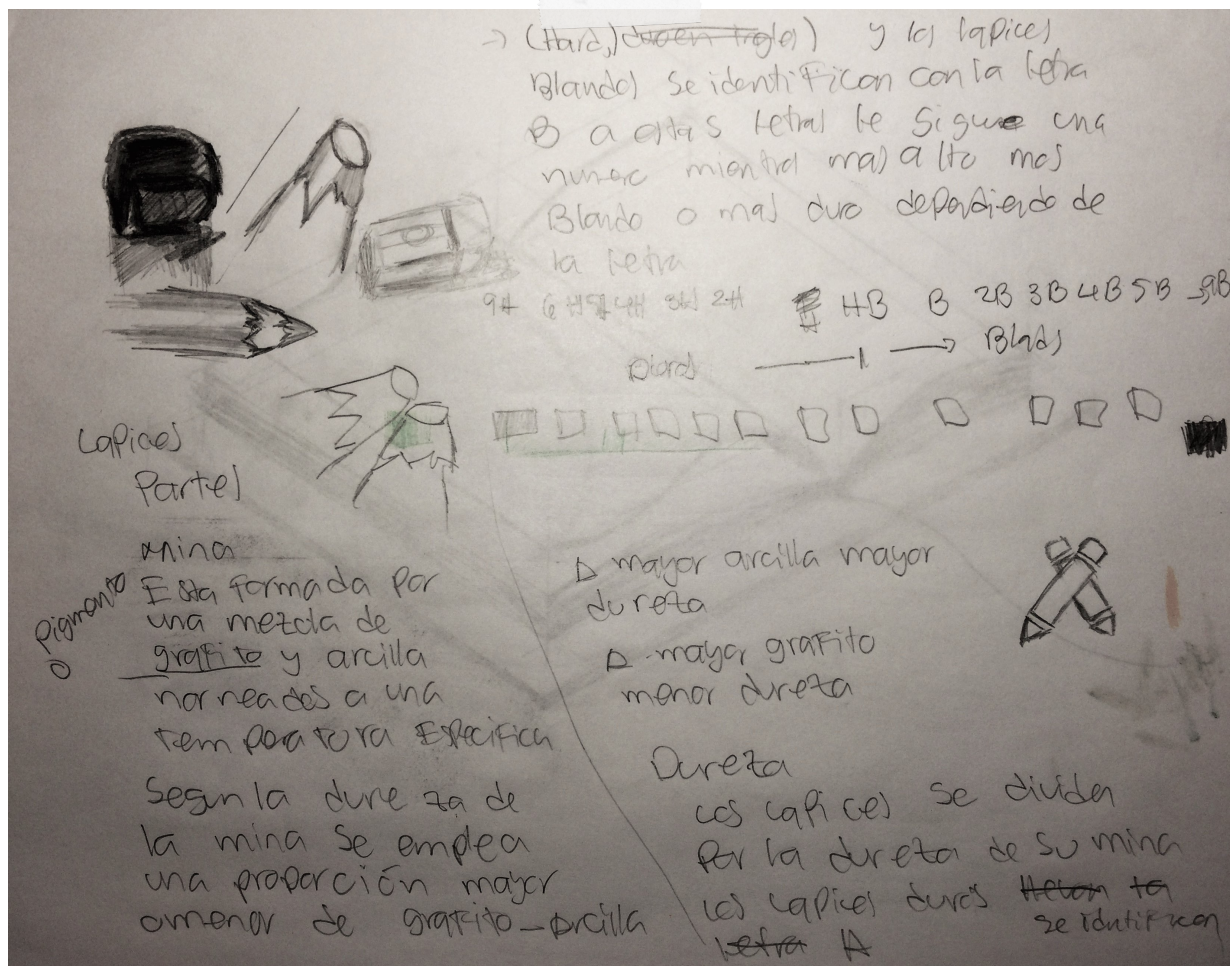 → (Hard,) duo en Ingles) y los lapices
Blandos se identifican con la letra
B a estas letras le sigue una
numero mientras mas alto mas
Blando o mas duro dependiendo de
la letra
9H 6H 5H 4H 3H 2H H HB B 2B 3B 4B 5B -9B
Duros → Blads
Lapices
Partes
mina
Pigmento
o
Esta formada por
una mezcla de
grafito y arcilla
horneados a una
temperatura Especifica
Segun la dureza de
la mina se emplea
una proporción mayor
o menor de grafito-arcilla
mayor arcilla mayor
dureza
mayor grafito
menor dureza
Dureza
Los lapices se dividen
Por la dureza de su mina
Los lapices duros llevan la
se identifican
letra H